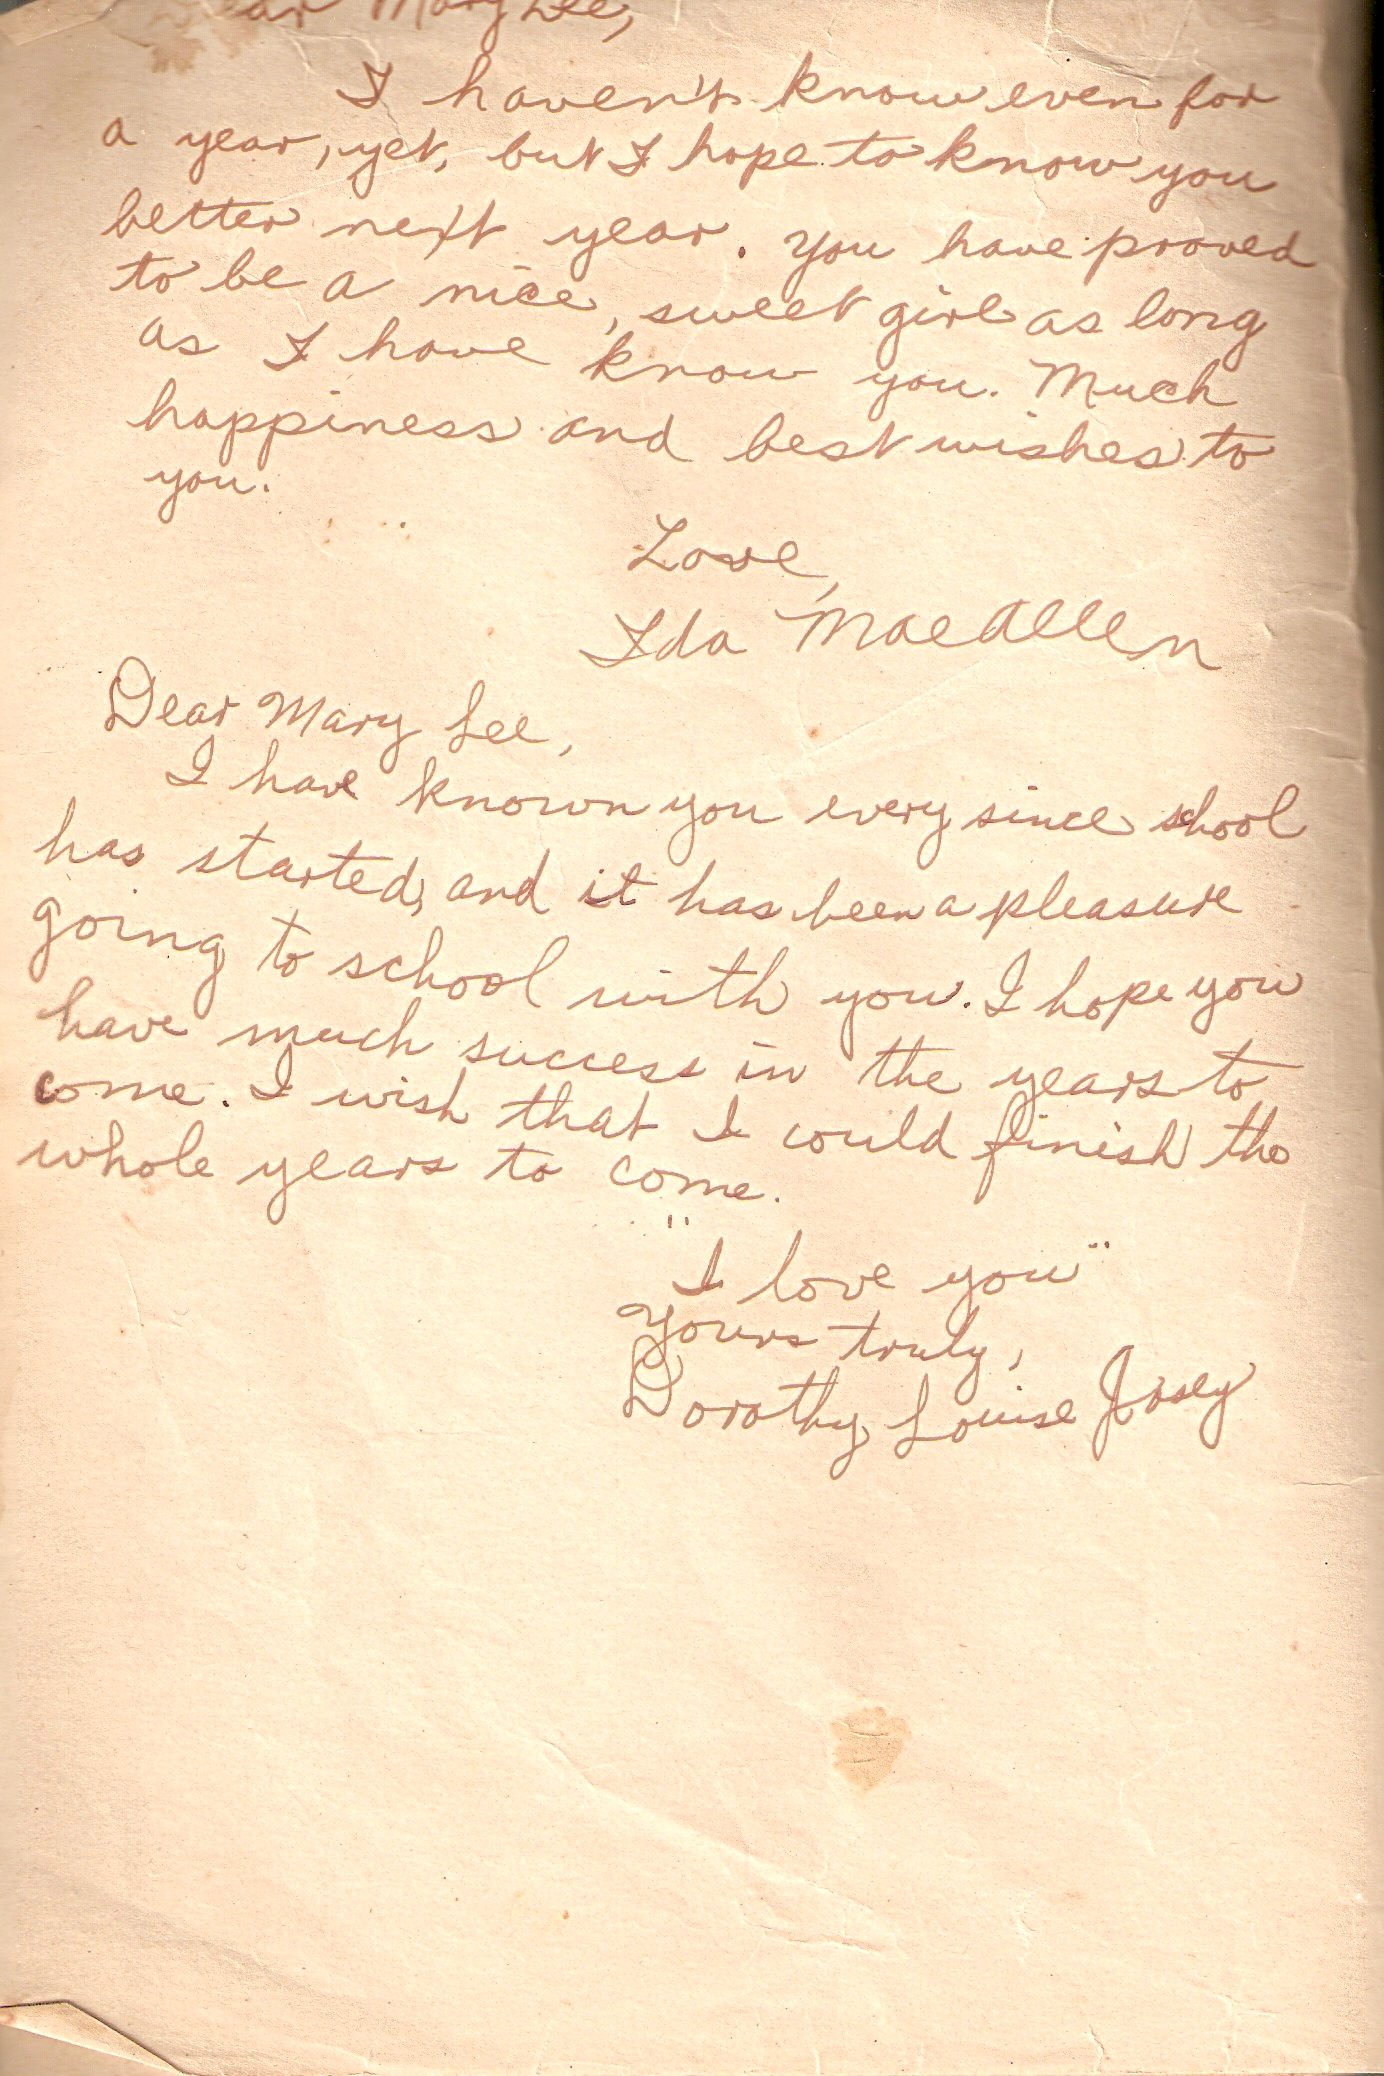 Dear Mary Lee,
I haven't know even for
a year, yet, but I hope to know you
better next year. You have proved
to be a nice, sweet girl as long
as I have know you. Much
happiness and best wishes to
you.
Love,
Ida Mae Allen
Dear Mary Lee,
I have known you every since school
has started, and it has been a pleasure
going to school with you. I hope you
have much success in the years to
come. I wish that I could finish the
whole years to come.
"I love you"
Yours truly,
Dorothy Louise Josey